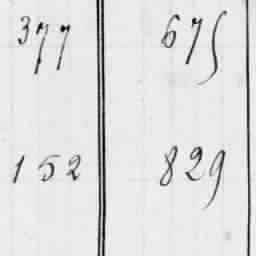 377 675
152 829